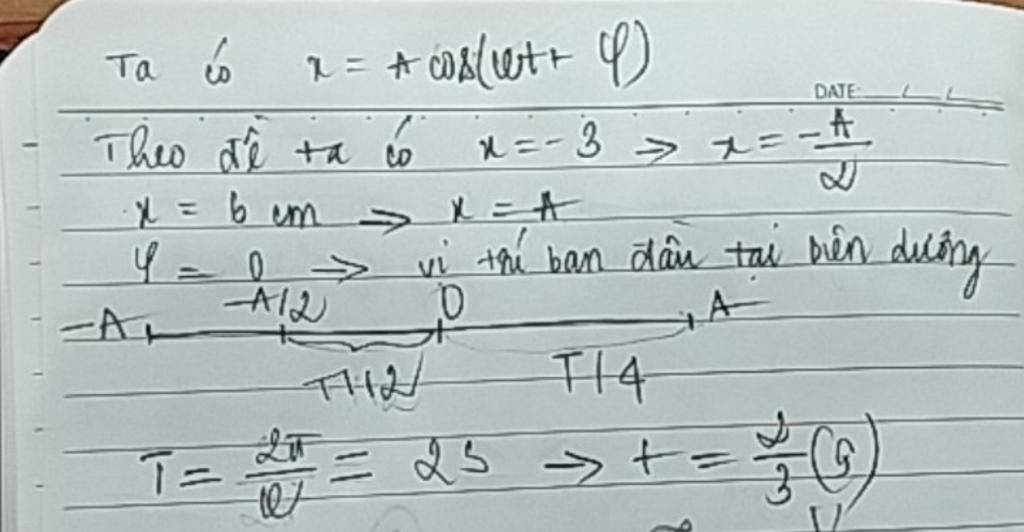 Ta có x = A cos(ωt + φ)
DATE:
Theo đề ta có x = -3 → x = -A/2
x = 6 cm → x = A
φ = 0 → vị trí ban đầu tại biên dương
-A -A/2 O A
T/12 T/4
T = 2π/ω = 2s → t = 2/3 (s)